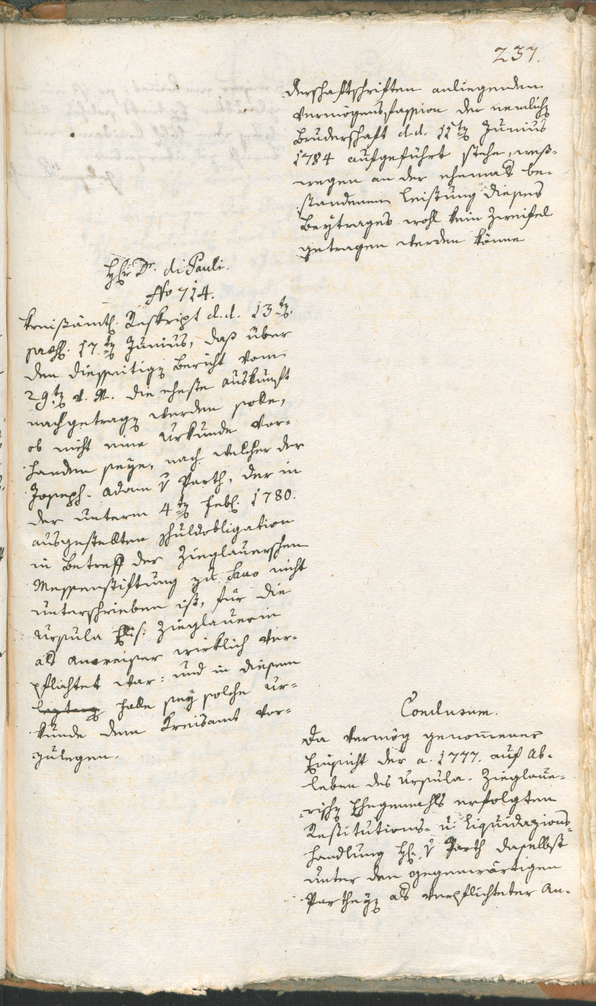 237.
derschaftschriften anliegenden
Vermögensfassion der nemlich
Bruderschaft d.d. 11ten Junius
1784 aufgeführt stehe, weß-
wegen an der ehemals be-
standenen Leistung dieses
Beytrages wohl kein Zweifel
getragen werden könne
Hr Dr. di Pauli.
No 714.
Kreisämtl. Reskript d.d. 13ten
17ten Junius, daß über
den diesseitigen Bericht vom
29ten v. M. die eheste Auskunft
nachgetragen werden solle,
ob nicht eine Urkunde vor-
handen seye, nach welcher der
Joseph Adam v Parth, der in
der unterm 4ten Febr. 1780.
ausgestellten Schuldobligation
in Betreff der Zieglauerschen
Messenstiftung zu nicht
unterschrieben ist, für die
Ursula Elis. Zieglauerin
als Anweiser wirklich ver-
pflichtet war: und in diesem
Falle sey solche Ur-
kunde dem Kreisamt vor-
zulegen.
Conclusum.
Da vermög genommener
Einsicht der a. 1777. auf Ab-
leben des Ursula Zieglaue-
rischen Ehegemahls erfolgten
Restitutions- u Liquidazions-
handlung H. v Parth daselbst
unter den gegenwärtigen
Partheyen als verpflichteter An-